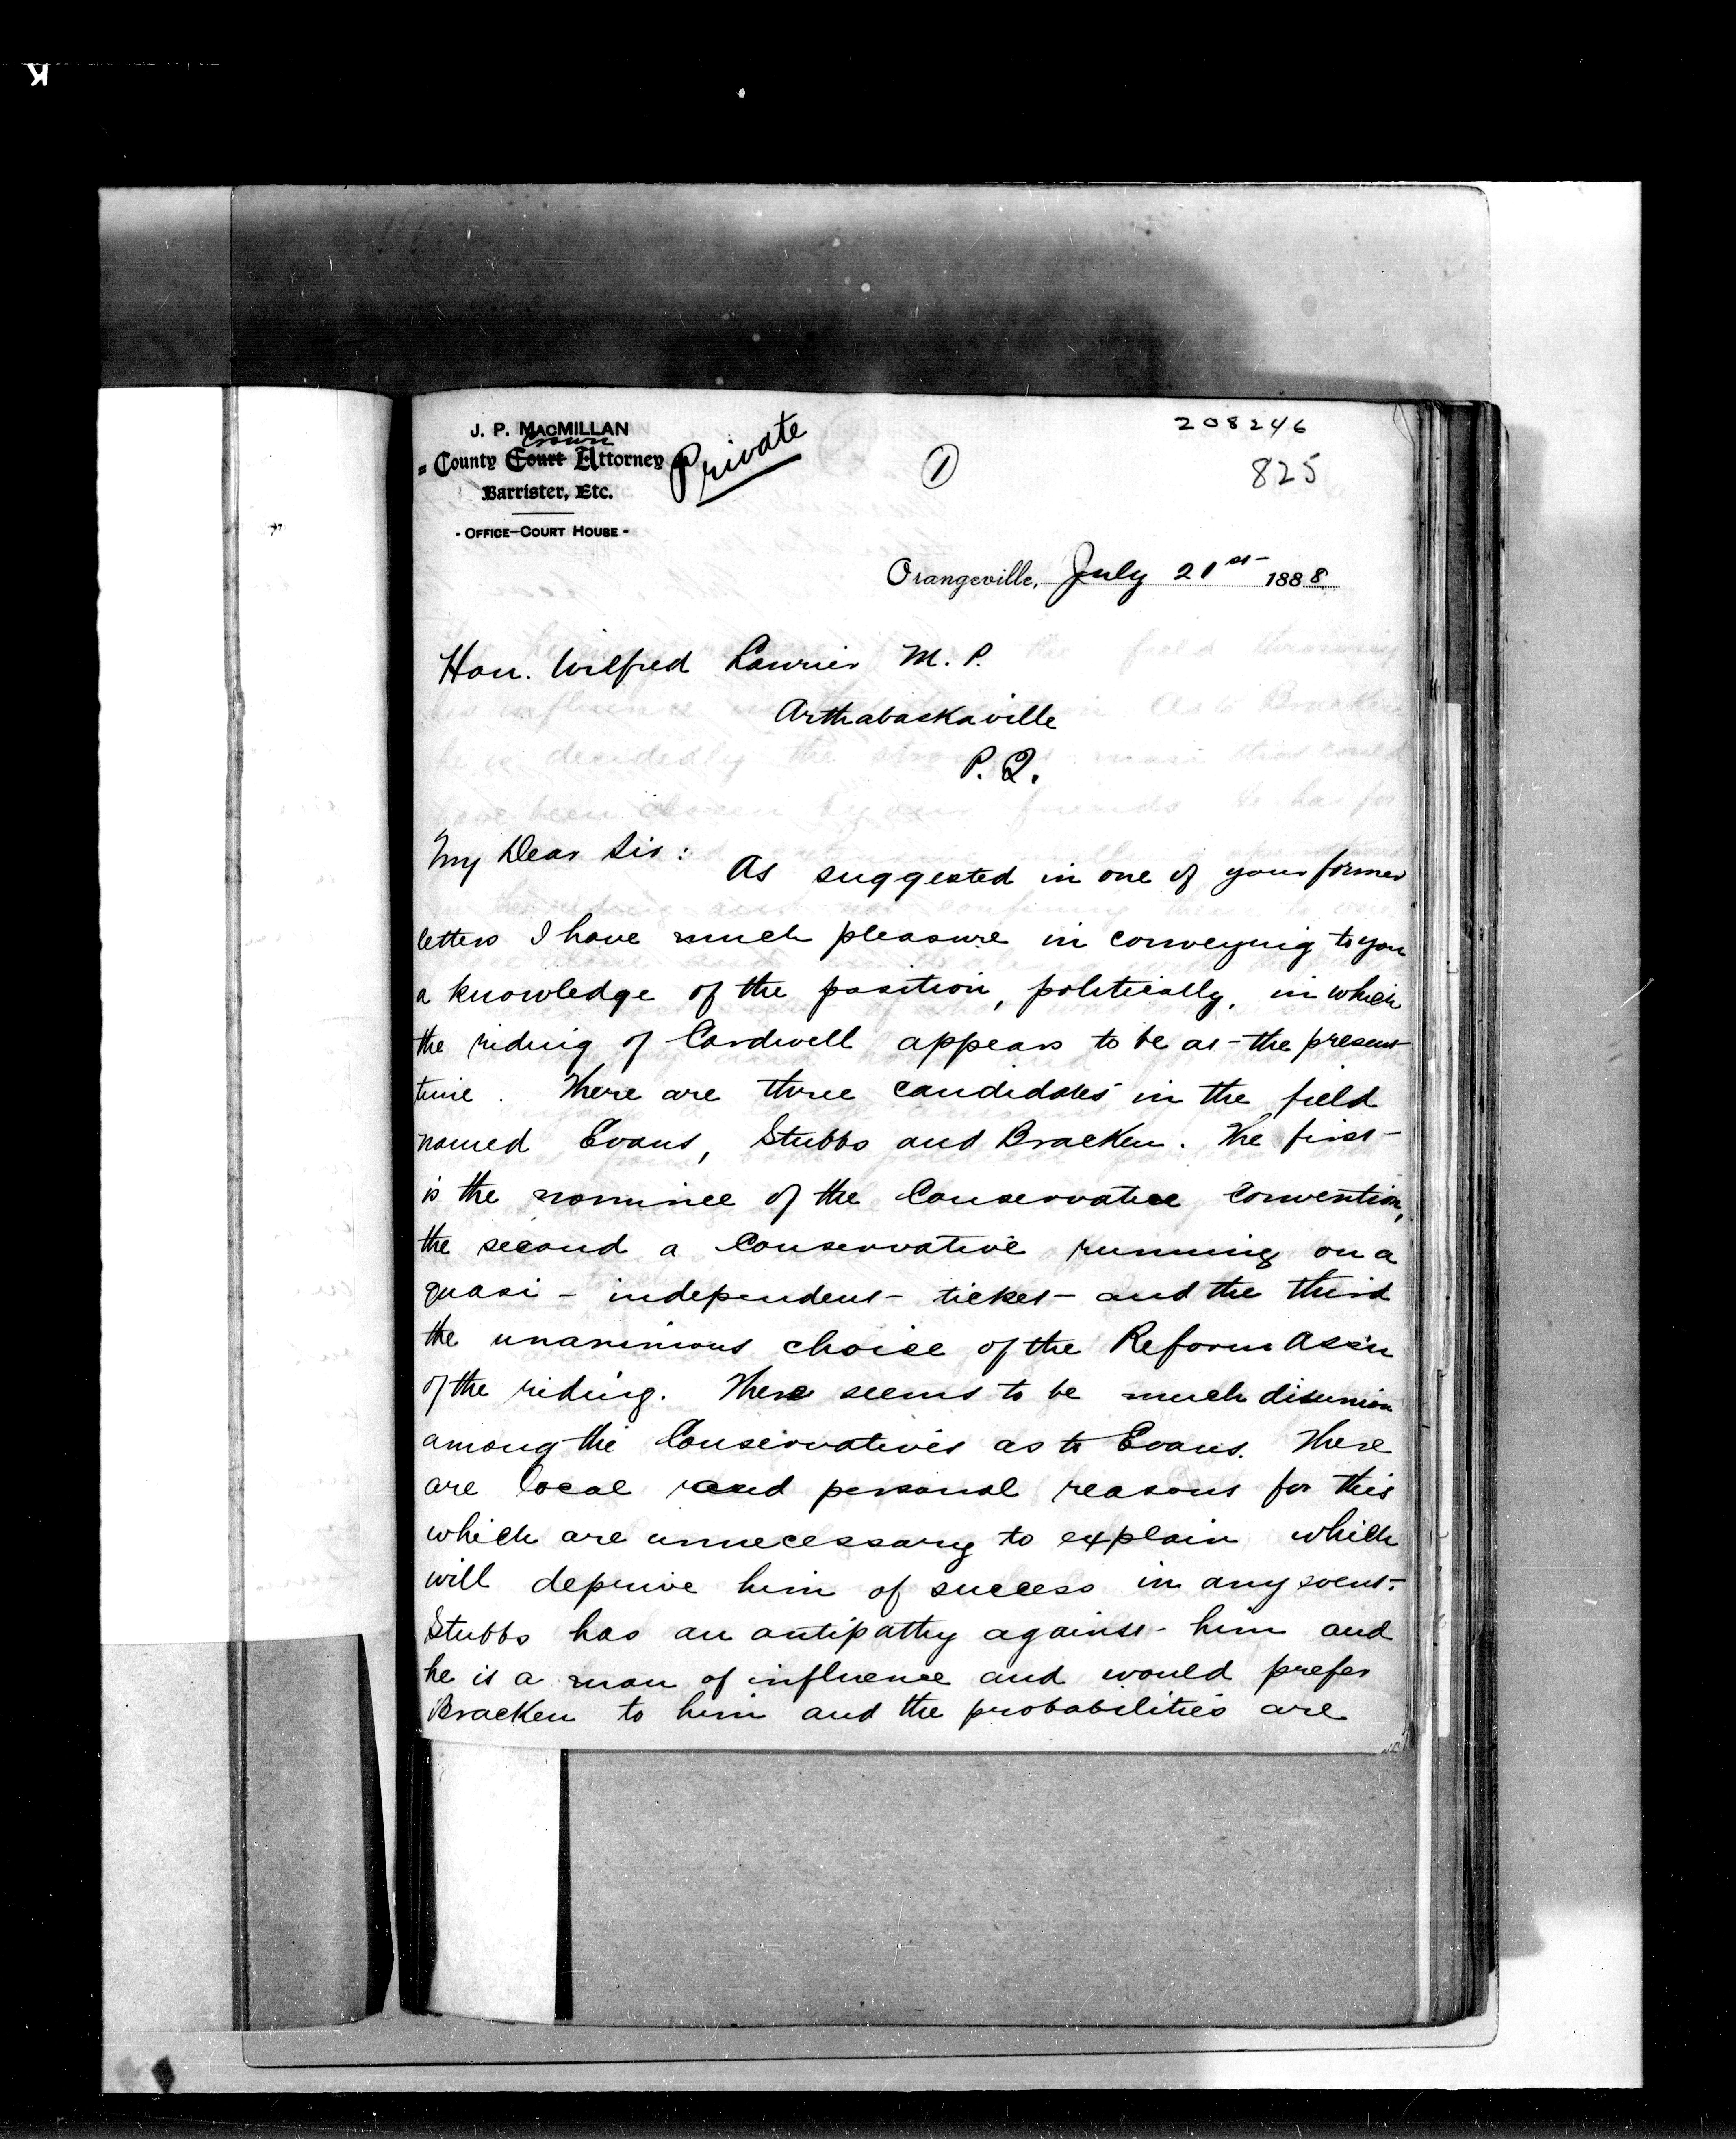 208246
825
J. P. MACMILLAN
Crown
County Court Attorney
Barrister, Etc.
- OFFICE-COURT HOUSE -
Private
1
Orangeville, July 21st 1888
Hon. Wilfred Laurier M. P.
Arthabaskaville
P. Q.
My Dear Sir:
As suggested in one of your former
letters I have much pleasure in conveying to you
a knowledge of the position, politically, in which
the riding of Cardwell appears to be at the present
time. There are three candidates in the field
named Evans, Stubbs and Bracken. The first
is the nominee of the Conservative Convention,
the second a Conservative running on a
quasi-independent ticket and the third
the unanimous choice of the Reform Ass'n
of the riding. There seems to be much disunion
among the Conservatives as to Evans. There
are local and personal reasons for this
which are unnecessary to explain which
will deprive him of success in any event.
Stubbs has an antipathy against him and
he is a man of influence and would prefer
Bracken to him and the probabilities are